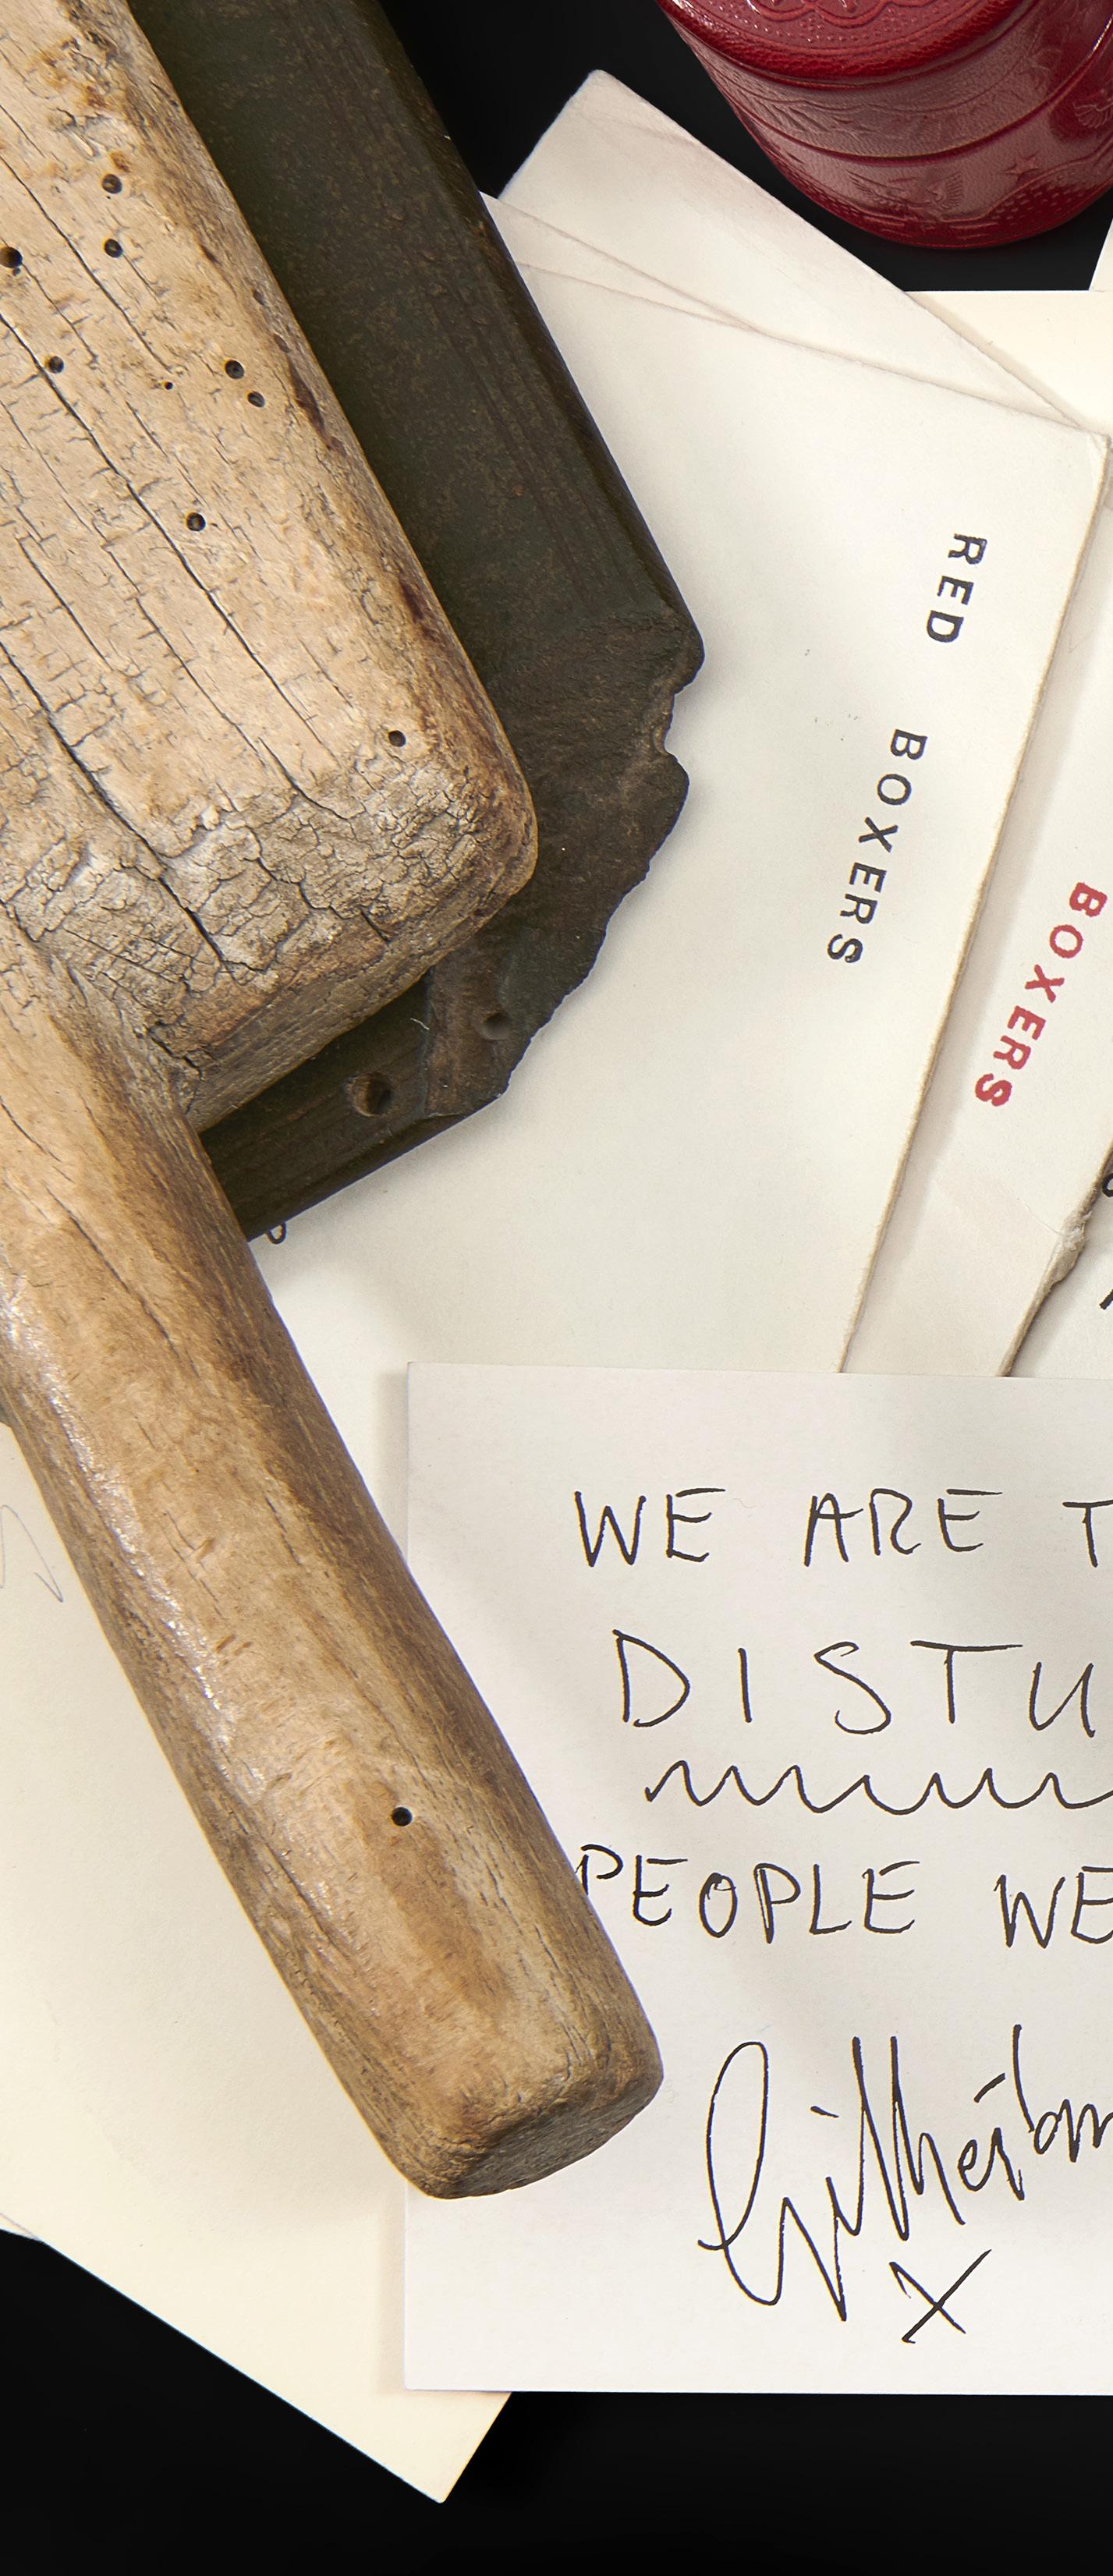 RED BOXERS
BOXERS
WE ARE T
DISTU
PEOPLE WE